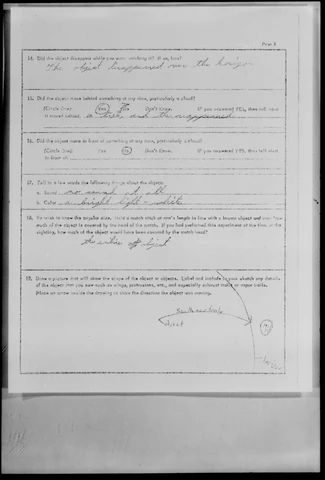 Page 3
14. Did the object disappear while you were watching it? If so, how?
The object disappeared over the horizon
15. Did the object move behind something at any time, particularly a cloud?
(Circle One): Yes No Don't Know. If you answered YES, then tell what
it moved behind: a tree and the reappeared
16. Did the object move in front of something at any time, particularly a cloud?
(Circle One): Yes No Don't Know. If you answered YES, then tell what
in front of:
17. Tell in a few words the following things about the object:
a. Sound no sound at all
b. Color a bright light - white
18. We wish to know the angular size. Hold a match stick at arm's length in line with a known object and note how
much of the object is covered by the head of the match. If you had performed this experiment at the time of the
sighting, how much of the object would have been covered by the match head?
the entire object
19. Draw a picture that will show the shape of the object or objects. Label and include in your sketch any details
of the object that you saw such as wings, protrusions, etc., and especially exhaust trails or vapor trails.
Place an arrow beside the drawing to show the direction the object was moving.
object